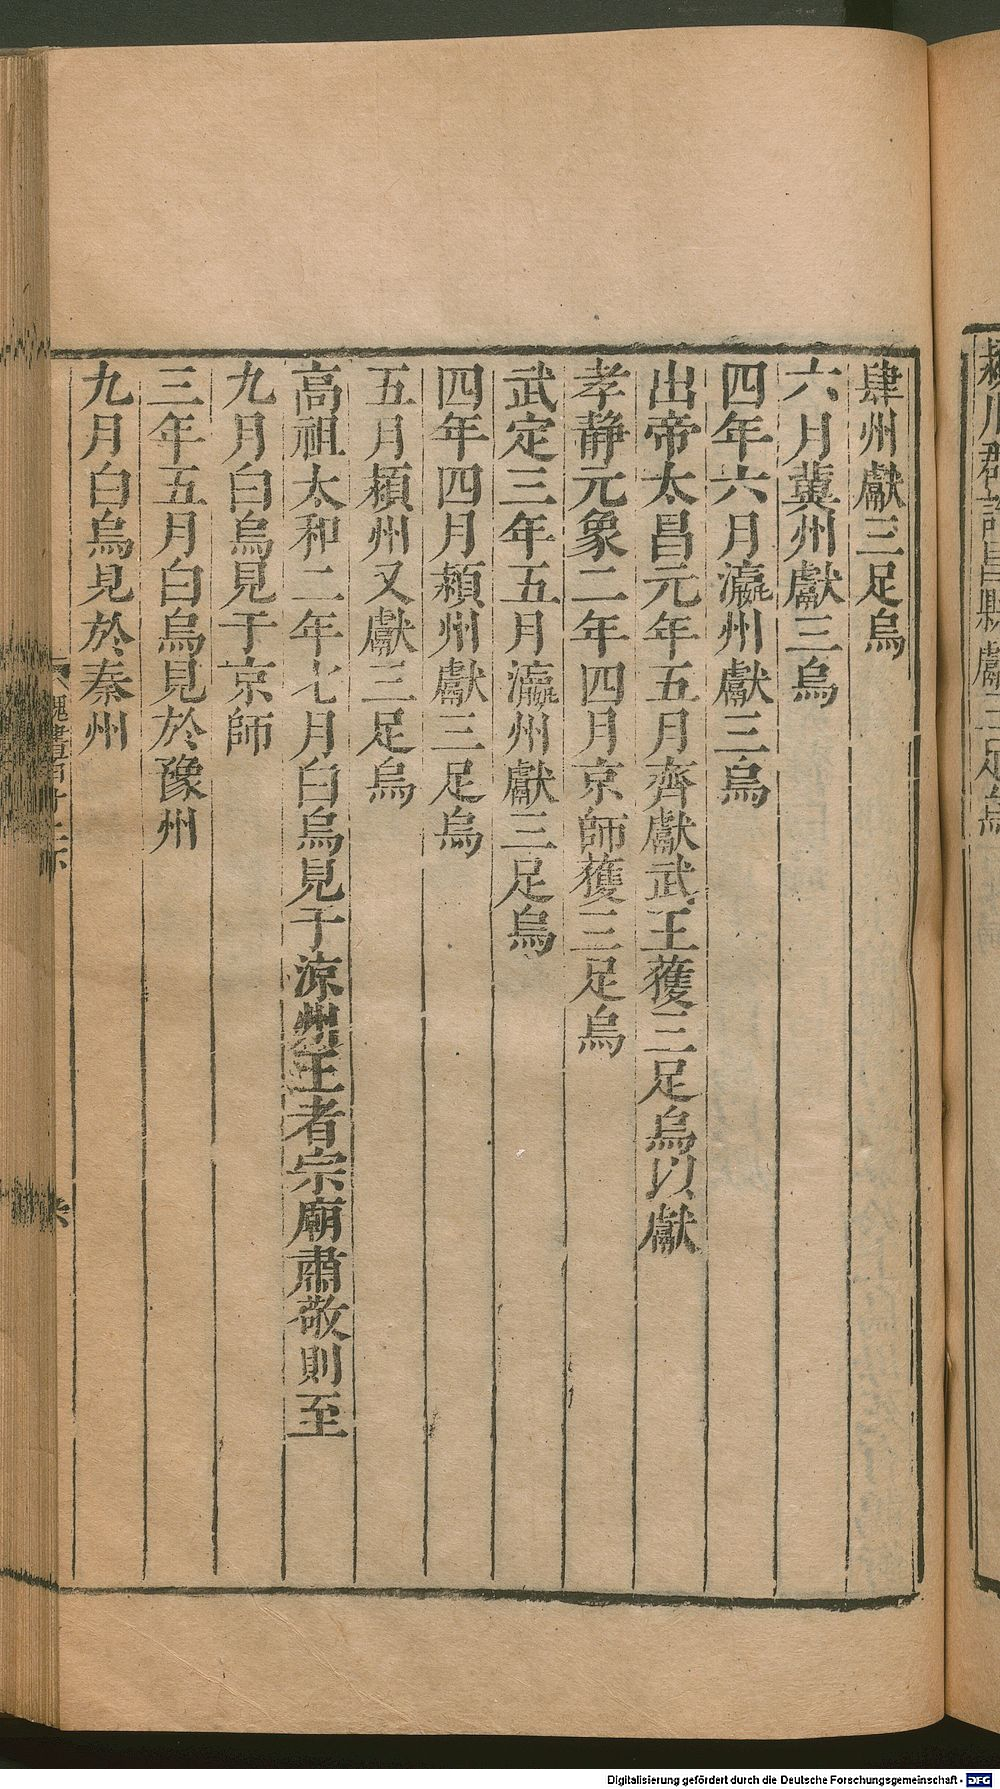 肆州獻三足烏
六月冀州獻三烏
四年六月瀛州獻三烏
出帝太昌元年五月齊獻武王獲三足烏以獻
孝静元象二年四月京師獲三足烏
武定三年五月瀛州獻三足烏
四年四月潁州獻三足烏
五月潁州又獻三足烏
高祖太和二年七月白烏見于涼州王者宗廟肅敬則至
九月白烏見于京師
三年五月白烏見於豫州
九月白烏見於秦州
Digitalisierung gefördert durch die Deutsche Forschungsgemeinschaft - DFG